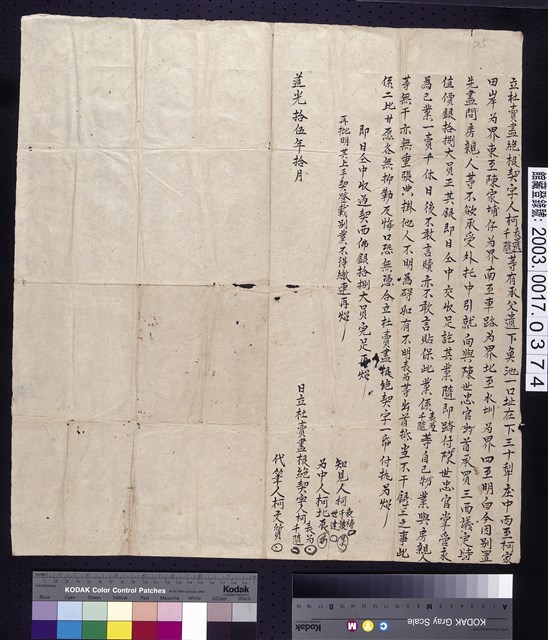 立杜賣盡絕根契字人柯長遜千隨等有承父遺下魚池一口址在下三十犁庄中西至柯家
田岸為界東至陳家埔仔為界南至車路為界北至水圳為界四至明白今因別置
先盡問房親人等不欲承受外托中引就向與陳世忠官出首承買三面議定時
值價銀拾捌大員正其銀即日仝中交收足訖其業隨即踏付陳世忠官掌管永
為己業一賣千休日後不敢言贖亦不敢言貼保此業係長遜千隨等自己物業與房親人
等無干亦無重張典掛他人不明為碍如有不明長等出首抵當不干銀主之事此
係二比甘愿各無抑勒反悔口恐無憑合立杜賣盡根絕契字一帋付執為炤
即日仝中收過契面佛銀拾捌大員完足再炤
再批明其上手契登載別業不得繳連再炤
道光拾伍年拾月
日立杜賣盡根絕契字人柯千隨
知見人柯
為中人柯
代筆人柯天質
館藏登錄號：2003.0017.0374
KODAK Color Control Patches
Kodak
Blue Cyan Green Yellow Red Magenta White 3/Color Black
KODAK Gray Scale
C Y M
A